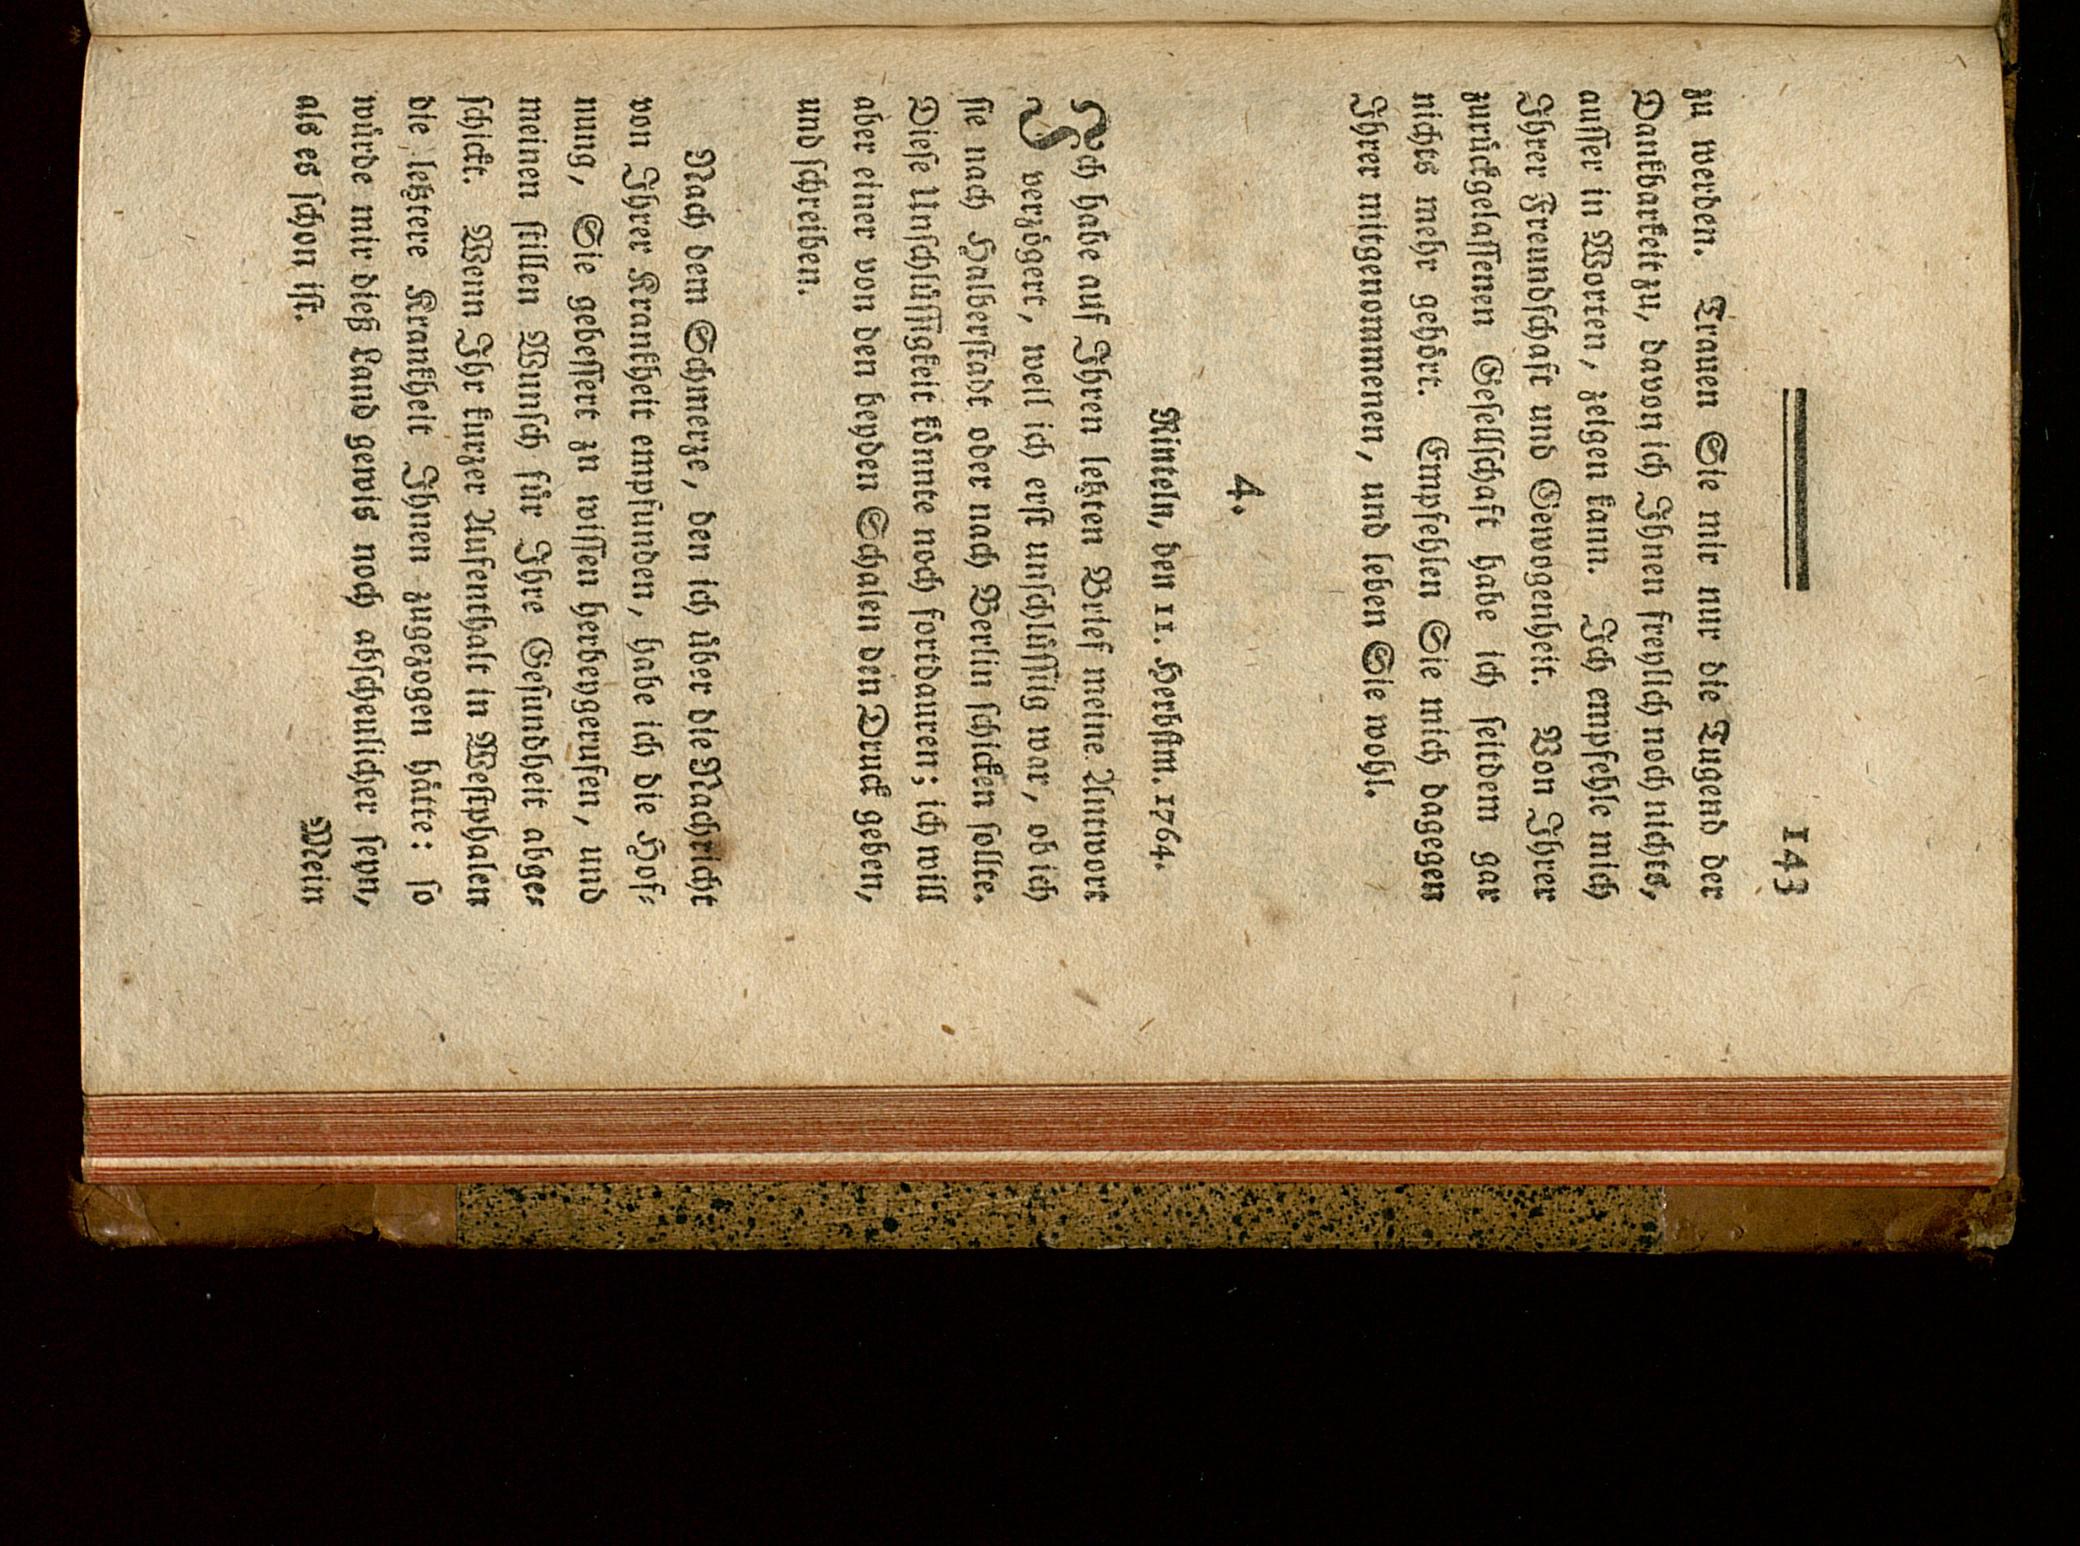 143
zu werden. Trauen Sie mir nur die Tugend der
Dankbarkeit zu, davon ich Ihnen freylich noch nichts,
auſſer in Worten, zeigen kann. Ich empfehle mich
Ihrer Freundſchaft und Gewogenheit. Von Ihrer
zurückgelaſſenen Geſellſchaft habe ich ſeitdem gar
nichts mehr gehört. Empfehlen Sie mich dagegen
Ihrer mitgenommenen, und leben Sie wohl.
4.
Rinteln, den 11. Herbſtm. 1764.
Ich habe auf Ihren letzten Brief meine Antwort
verzögert, weil ich erſt unſchlüſſig war, ob ich
ſie nach Halberſtadt oder nach Berlin ſchicken ſollte.
Dieſe Unſchlüſſigkeit könnte noch fortdauren; ich will
aber einer von den beyden Schalen den Druck geben,
und ſchreiben.
Nach dem Schmerze, den ich über die Nachricht
von Ihrer Krankheit empfunden, habe ich die Hof⸗
nung, Sie gebeſſert zu wiſſen herbeygerufen, und
meinen ſtillen Wunſch für Ihre Geſundheit abge⸗
ſchickt. Wenn Ihr kurzer Aufenthalt in Weſtphalen
die letztere Krankheit Ihnen zugezogen hätte: ſo
würde mir dieß Land gewis noch abſcheulicher ſeyn,
als es ſchon iſt.
Mein